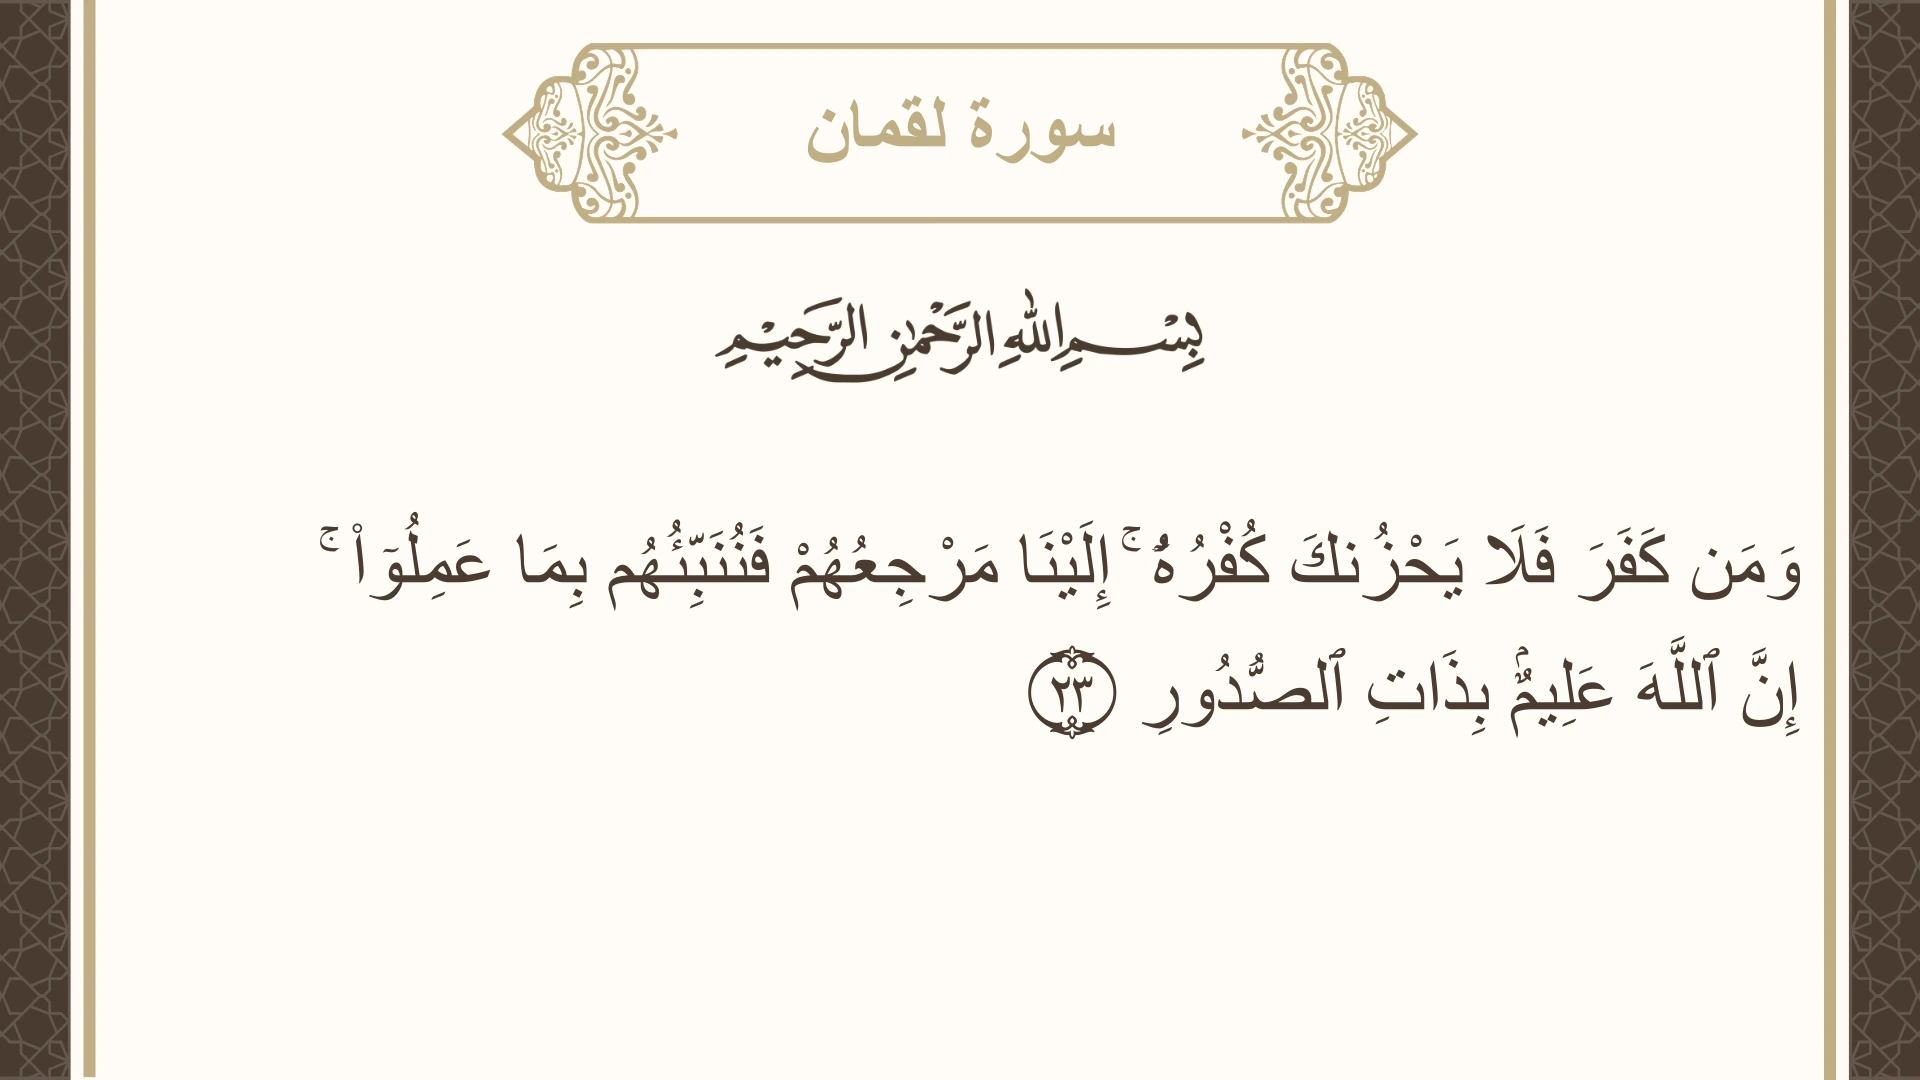 سورة لقمان
بِسْمِ اللهِ الرَّحْمٰنِ الرَّحِيْمِ
وَمَن كَفَرَ فَلَا يَحْزُنكَ كُفْرُهُۥٓ ۚ إِلَيْنَا مَرْجِعُهُمْ فَنُنَبِّئُهُم بِمَا عَمِلُوٓا۟ ۚ
إِنَّ ٱللَّهَ عَلِيمٌۢ بِذَاتِ ٱلصُّدُورِ ٢٣